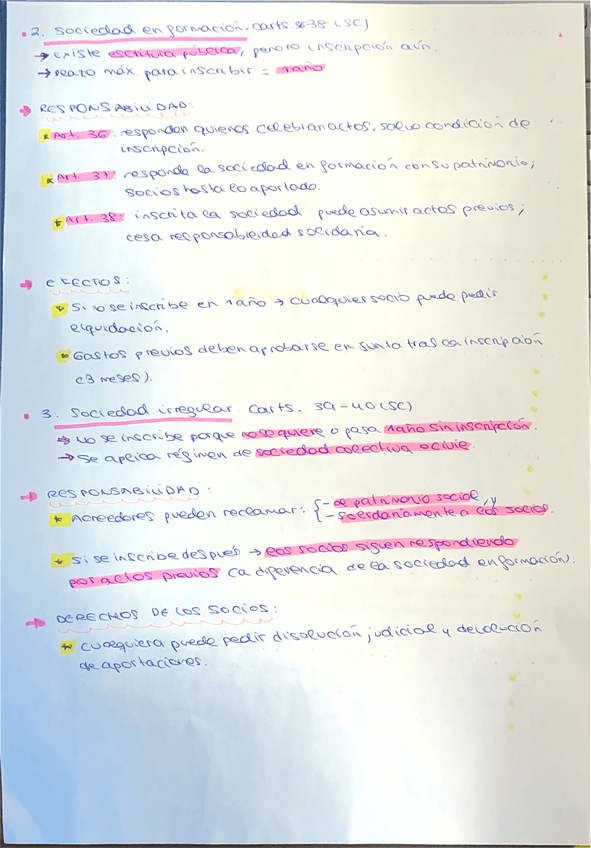 2. Sociedad en formación. (arts 36-38 LSC)
→ Existe escritura pública, pero no inscripción aún.
→ Plazo máx. para inscribir = 1 año
→ RESPONSABILIDAD:
* Art. 36: responden quienes celebran actos, salvo condición de
inscripción.
* Art. 37: responde la sociedad en formación con su patrimonio;
socios hasta lo aportado.
* Art. 38: inscrita la sociedad puede asumir actos previos;
cesa responsabilidad solidaria.
→ EFECTOS:
* Si no se inscribe en 1 año → cualquier socio puede pedir
liquidación.
* Gastos previos deben aprobarse en junta tras la inscripción
(3 meses).
3. Sociedad irregular (arts. 39-40 LSC)
→ No se inscribe porque no se quiere o pasa 1 año sin inscripción.
→ Se aplica régimen de sociedad colectiva o civil
→ RESPONSABILIDAD:
* Acreedores pueden reclamar: { - al patrimonio social, y
- solidariamente a los socios.
* Si se inscribe después → los socios siguen respondiendo
por actos previos (a diferencia de la sociedad en formación.
→ DERECHOS DE LOS SOCIOS:
* Cualquiera puede pedir disolución judicial y devolución
de aportaciones.